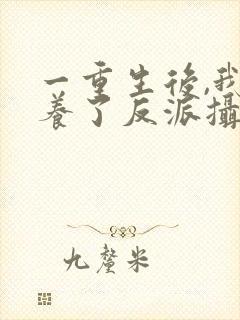 一重生後,我
養了反派攝
九釐米